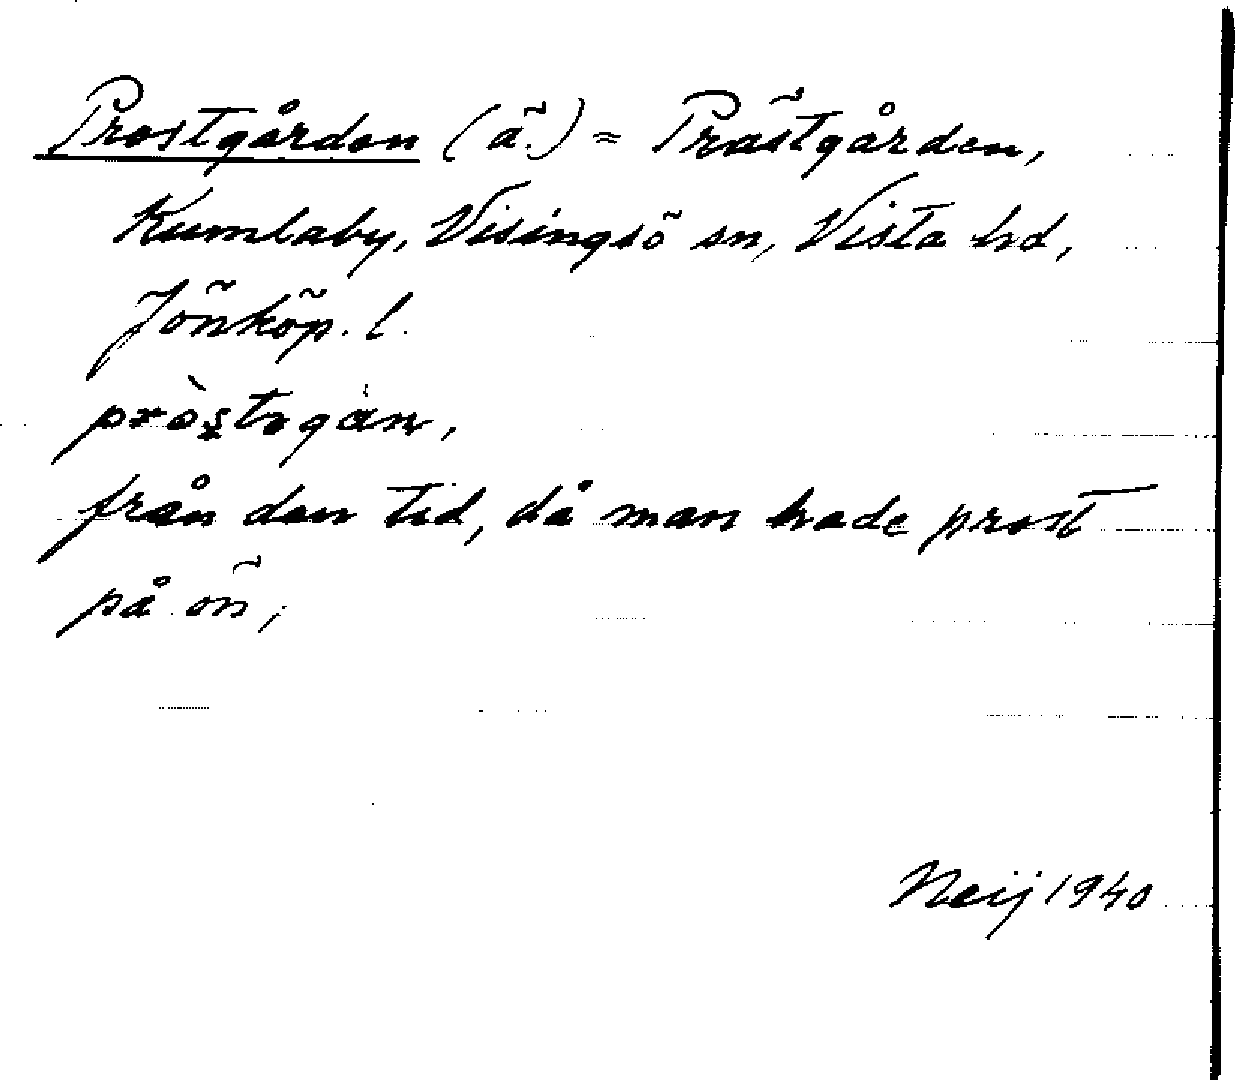 Prostgården (ä.) = Prästgården,
Kumlaby, Visingsö sn, Vista hd,
Jönköp. l.
från den tid, då man hade prost
på ön,
Neij 1940